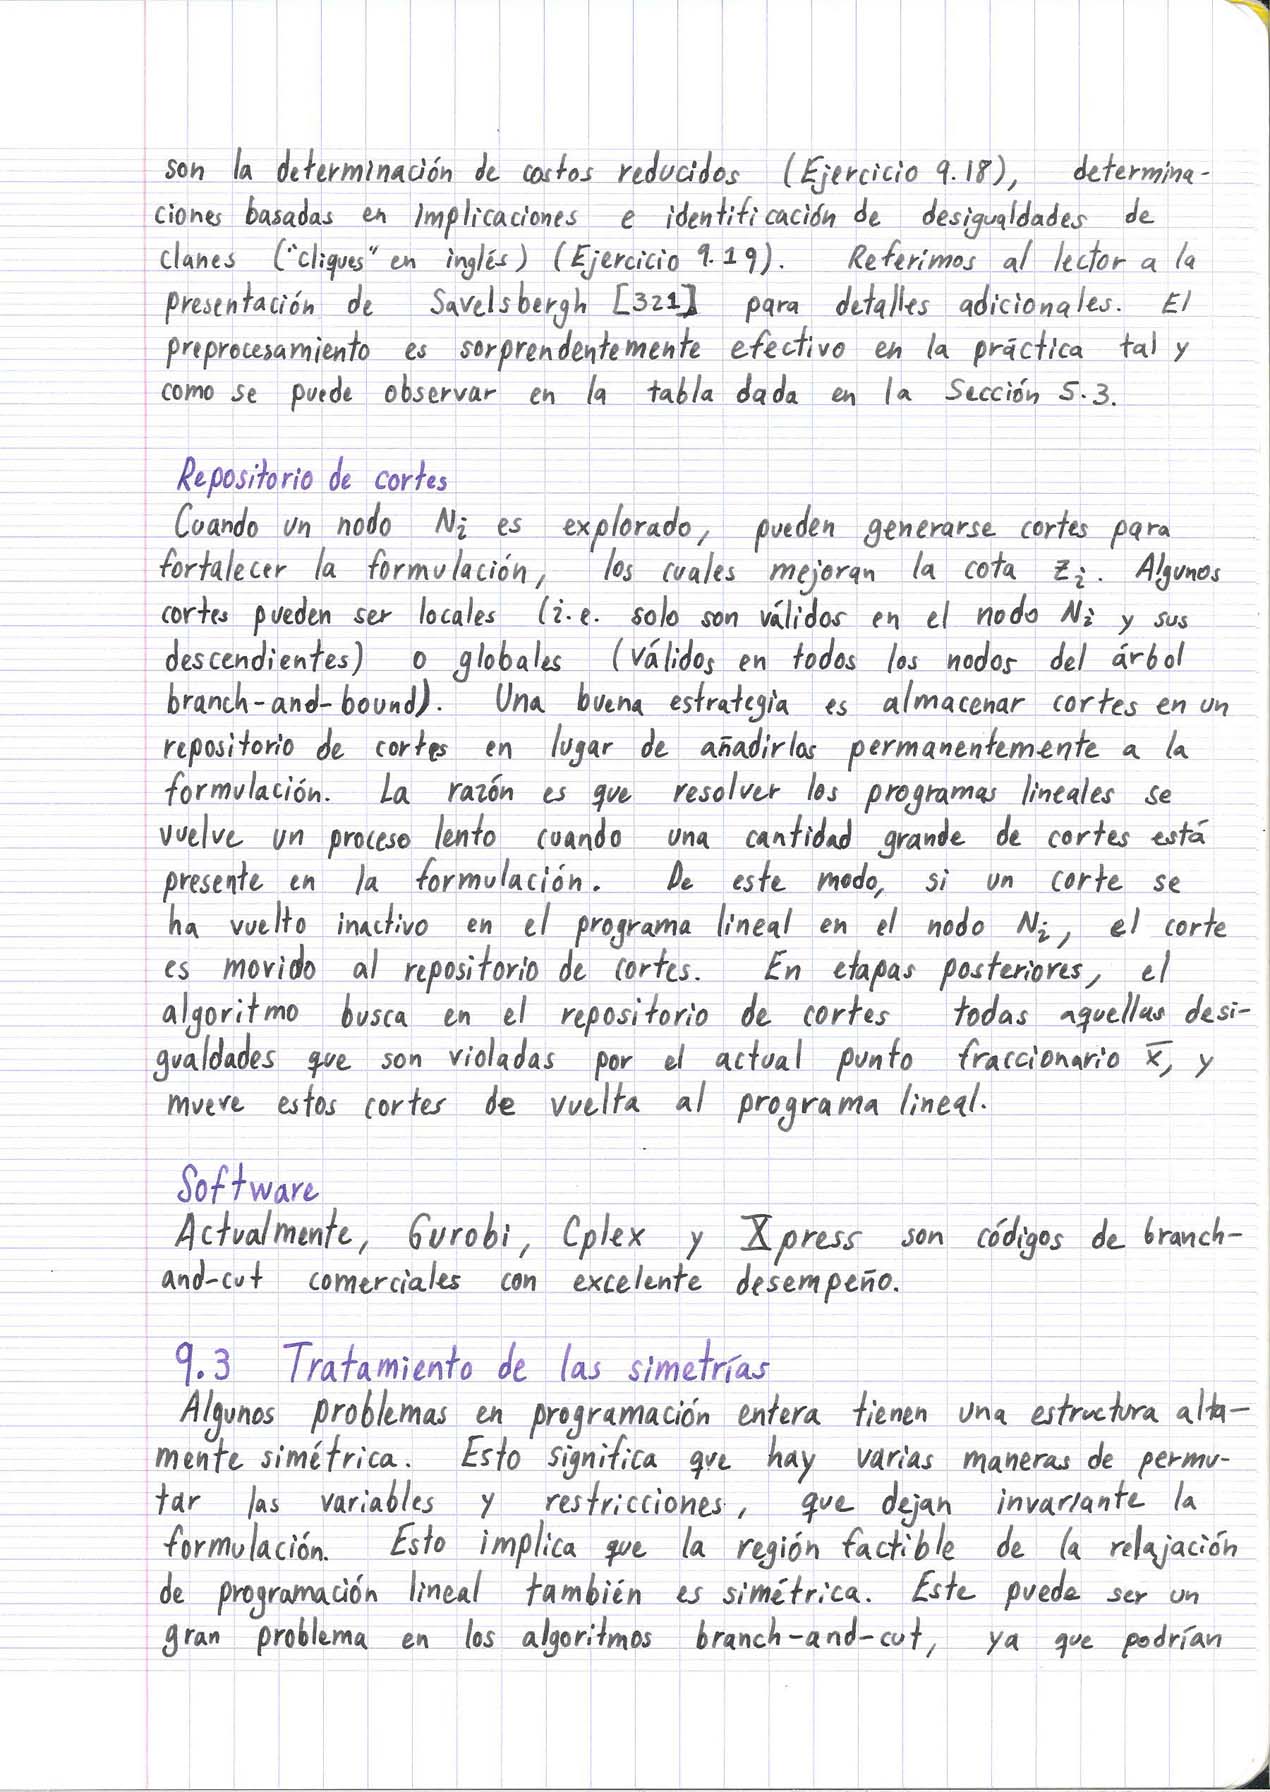 son la determinación de costos reducidos (Ejercicio 9.18), determina-
ciones basadas en implicaciones e identificación de desigualdades de
clanes ("cliques" en inglés) (Ejercicio 9.19). Referimos al lector a la
presentación de Savelsbergh [321] para detalles adicionales. El
preprocesamiento es sorprendentemente efectivo en la práctica tal y
como se puede observar en la tabla dada en la Sección 5.3.
Repositorio de cortes
Cuando un nodo Ni es explorado, pueden generarse cortes para
fortalecer la formulación, los cuales mejoran la cota zi. Algunos
cortes pueden ser locales (i.e. solo son válidos en el nodo Ni y sus
descendientes) o globales (válidos en todos los nodos del árbol
branch-and-bound). Una buena estrategia es almacenar cortes en un
repositorio de cortes en lugar de añadirlos permanentemente a la
formulación. La razón es que resolver los programas lineales se
vuelve un proceso lento cuando una cantidad grande de cortes está
presente en la formulación. De este modo, si un corte se
ha vuelto inactivo en el programa lineal en el nodo Ni, el corte
es movido al repositorio de cortes. En etapas posteriores, el
algoritmo busca en el repositorio de cortes todas aquellas desi-
gualdades que son violadas por el actual punto fraccionario x̄, y
mueve estos cortes de vuelta al programa lineal.
Software
Actualmente, Gurobi, Cplex y Xpress son códigos de branch-
and-cut comerciales con excelente desempeño.
9.3 Tratamiento de las simetrías
Algunos problemas en programación entera tienen una estructura alta-
mente simétrica. Esto significa que hay varias maneras de permu-
tar las variables y restricciones, que dejan invariante la
formulación. Esto implica que la región factible de la relajación
de programación lineal también es simétrica. Este puede ser un
gran problema en los algoritmos branch-and-cut, ya que podrían